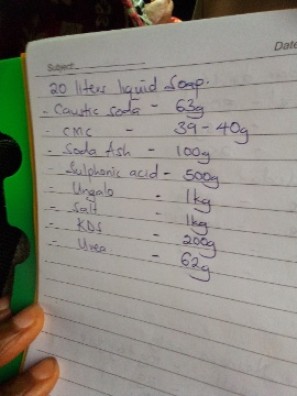 Date
Subject:
20 liters liquid Soap.
- Caustic soda - 63g
- CMC - 39-40g
- Soda Ash - 100g
- Sulphonic acid - 500g
- Ungalo - 1kg
- Salt - 1kg
- KDS - 200g
- Urea - 62g